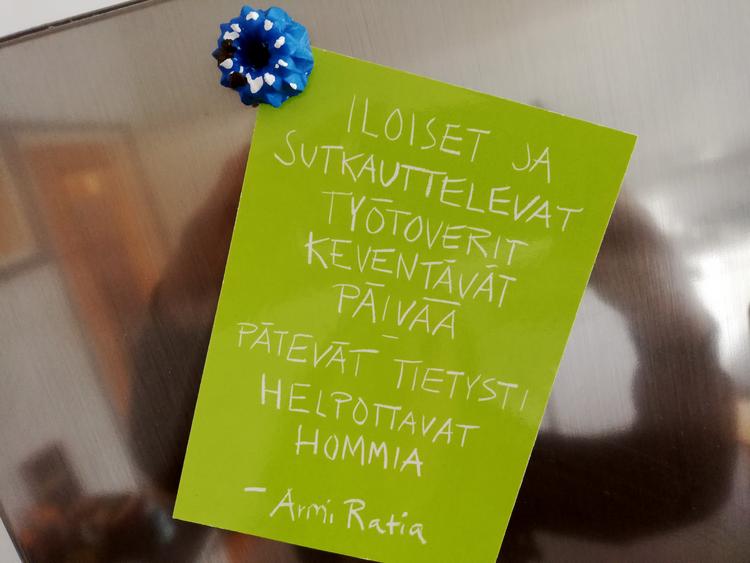 ILOISET JA
SUTKAUTTELEVAT
TYÖTOVERIT
KEVENTÄVÄT
PÄIVÄÄ
–
PÄTEVÄT TIETYSTI
HELPOTTAVAT
HOMMIA
– Armi Ratia